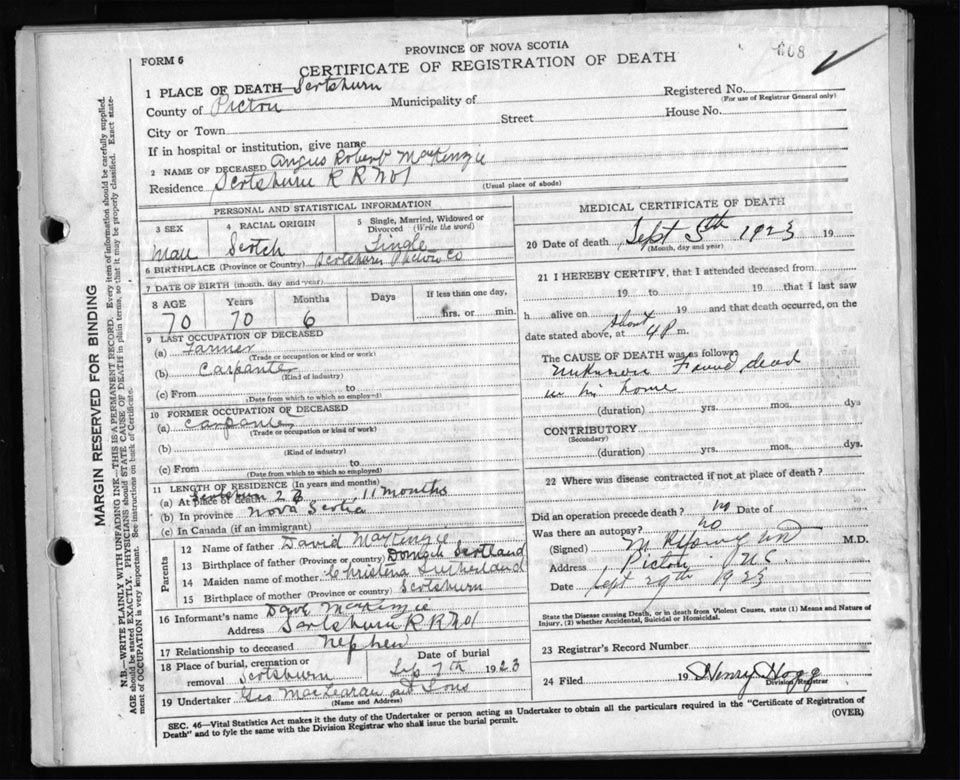 608
PROVINCE OF NOVA SCOTIA
FORM 6
CERTIFICATE OF REGISTRATION OF DEATH
1 PLACE OF DEATH—Scotsburn
Registered No.
(For use of Registrar General only)
County of Pictou Municipality of
City or Town Street House No.
If in hospital or institution, give name
2 NAME OF DECEASED Angus Robert MacKenzie
Residence Scotsburn R R No 1
(Usual place of abode)
PERSONAL AND STATISTICAL INFORMATION
3 SEX 4 RACIAL ORIGIN 5 Single, Married, Widowed or Divorced (Write the word)
Male Scotch Single
6 BIRTHPLACE (Province or Country) Scotsburn Pictou Co
7 DATE OF BIRTH (month, day and year)
8 AGE Years Months Days If less than one day,
70 70 6 hrs. or min.
9 LAST OCCUPATION OF DECEASED
(a) Farmer
(Trade or occupation or kind of work)
(b) Carpanter
(Kind of industry)
(c) From to
(Date from which to which so employed)
10 FORMER OCCUPATION OF DECEASED
(a) Carpanter
(Trade or occupation or kind of work)
(b)
(Kind of industry)
(c) From to
(Date from which to which so employed)
11 LENGTH OF RESIDENCE (In years and months)
(a) At place of death Scotsburn 11 months
(b) In province Nova Scotia
(c) In Canada (if an immigrant)
Parents
12 Name of father David MacKenzie
13 Birthplace of father (Province or country) Scotland
14 Maiden name of mother Christena Sutherland
15 Birthplace of mother (Province or country) Scotsburn
16 Informant's name Dave MacKenzie
Address Scotsburn R R No 1
17 Relationship to deceased Nephew
18 Place of burial, cremation or removal Scotsburn
Date of burial
Sep 7th 1923
19 Undertaker Geo and Sons
(Name and Address)
MEDICAL CERTIFICATE OF DEATH
20 Date of death Sept 5th 1923 19
(Month, day and year)
21 I HEREBY CERTIFY, that I attended deceased from
19 to 19 that I last saw
h alive on 19 and that death occurred, on the
date stated above, at About 4 P m.
The CAUSE OF DEATH was as follows
Unknown Found dead
in his home
(duration) yrs. mos. dys
CONTRIBUTORY
(Secondary)
(duration) yrs. mos. dys.
22 Where was disease contracted if not at place of death?
Did an operation precede death? no Date of
Was there an autopsy? no
(Signed) M.D.
Address Pictou N.S.
Date Sept 29th 1923
State the Disease causing Death, or in death from Violent Causes, state (1) Means and Nature of
Injury, (2) whether Accidental, Suicidal or Homicidal.
23 Registrar's Record Number
24 Filed 19 Henry Hogg
Division Registrar
SEC. 46—Vital Statistics Act makes it the duty of the Undertaker or person acting as Undertaker to obtain all the particulars required in the "Certificate of Registration of
Death" and to fyle the same with the Division Registrar who shall issue the burial permit.
(OVER)
MARGIN RESERVED FOR BINDING
N.B.—WRITE PLAINLY WITH UNFADING INK—THIS IS A PERMANENT RECORD. Every item of information should be carefully supplied.
AGE should be stated EXACTLY. PHYSICIANS should STATE CAUSE OF DEATH in plain terms, so that it may be properly classified. Exact state-
ment of OCCUPATION is very important. See instructions on back of Certificate.